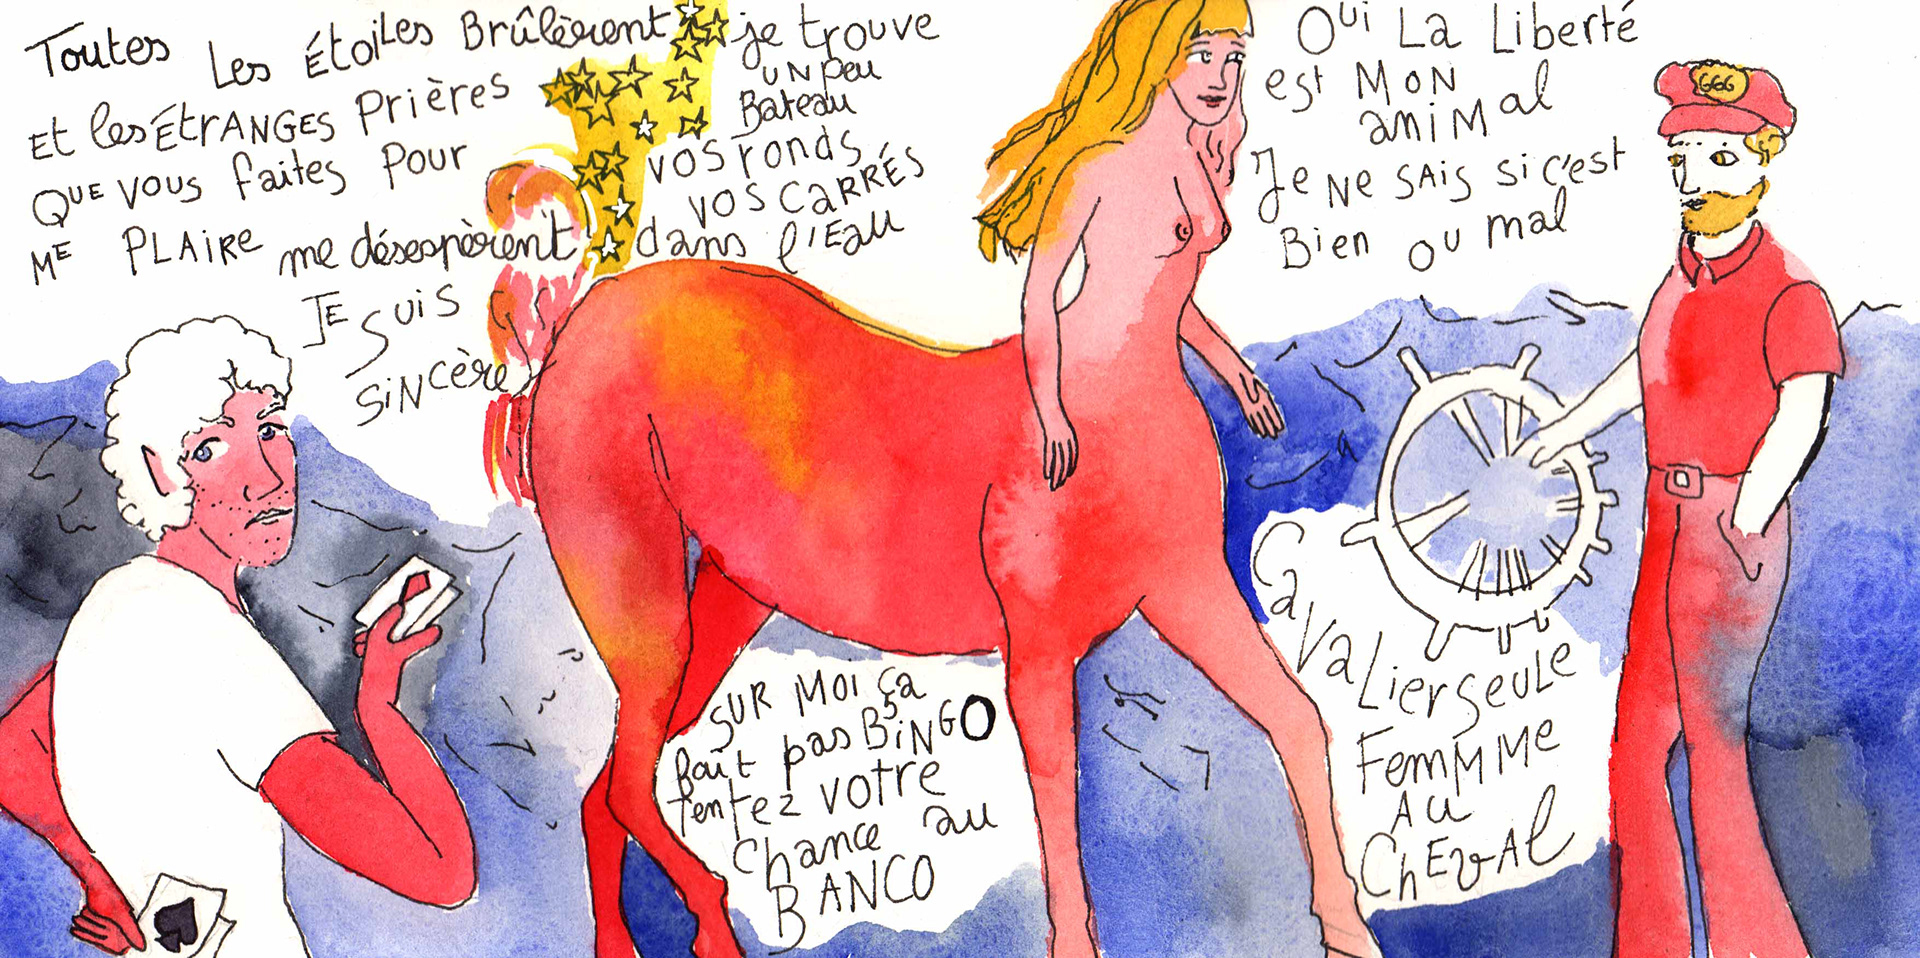 Toutes Les Étoiles Brûlèrent
Et les Étranges Prières
Que vous faites Pour
Me Plaire me désespèrent
Je suis
sincère
je trouve
un peu
Bateau
vos ronds
vos carrés
dans l'Eau
Oui La Liberté
est Mon
animal
Je Ne sais si c'est
Bien ou mal
666
Sur Moi ça
fait pas BiNGO
Tentez votre
Chance au
BANCO
Cavalier seule
Femmme
Au
ChEvAl